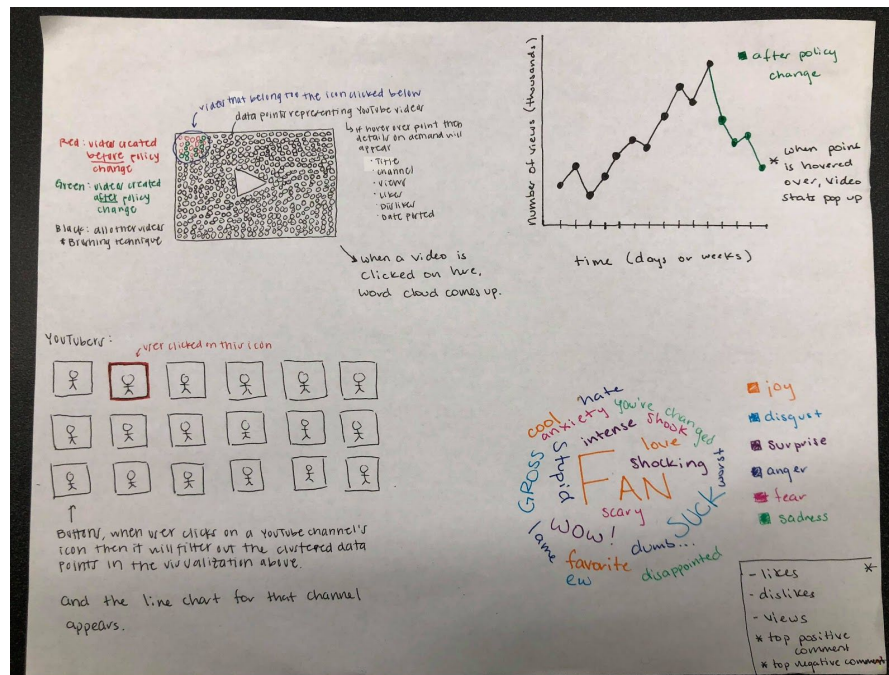 videos that belong too the icon clicked below
data points representing YouTube videos
Red: videos created
before policy
change
Green: videos created
after policy
change
Black: all other videos
* Brushing technique
if hover over point then
details on demand will
appear
· Title
· channel
· views
· Likes
· Dislikes
· Date posted
when a video is
clicked on here,
word cloud comes up.
number of views (thousands)
time (days or weeks)
after policy
change
* when point
is hovered
over, video
stats pop up
YouTubers:
user clicked on this icon
Buttons, when user clicks on a YouTube channel's
icon then it will filter out the clustered data
points in the visualization above.
and the line chart for that channel
appears.
hate
cool
anxiety
you're changed
shook
intense
love
GROSS
stupid
shocking
worst
FAN
scary
SUCK
WOW!
lame
dumb...
favorite
disappointed
ew
joy
disgust
surprise
anger
fear
sadness
- likes *
- dislikes
- views
* top positive
comment
* top negative comment